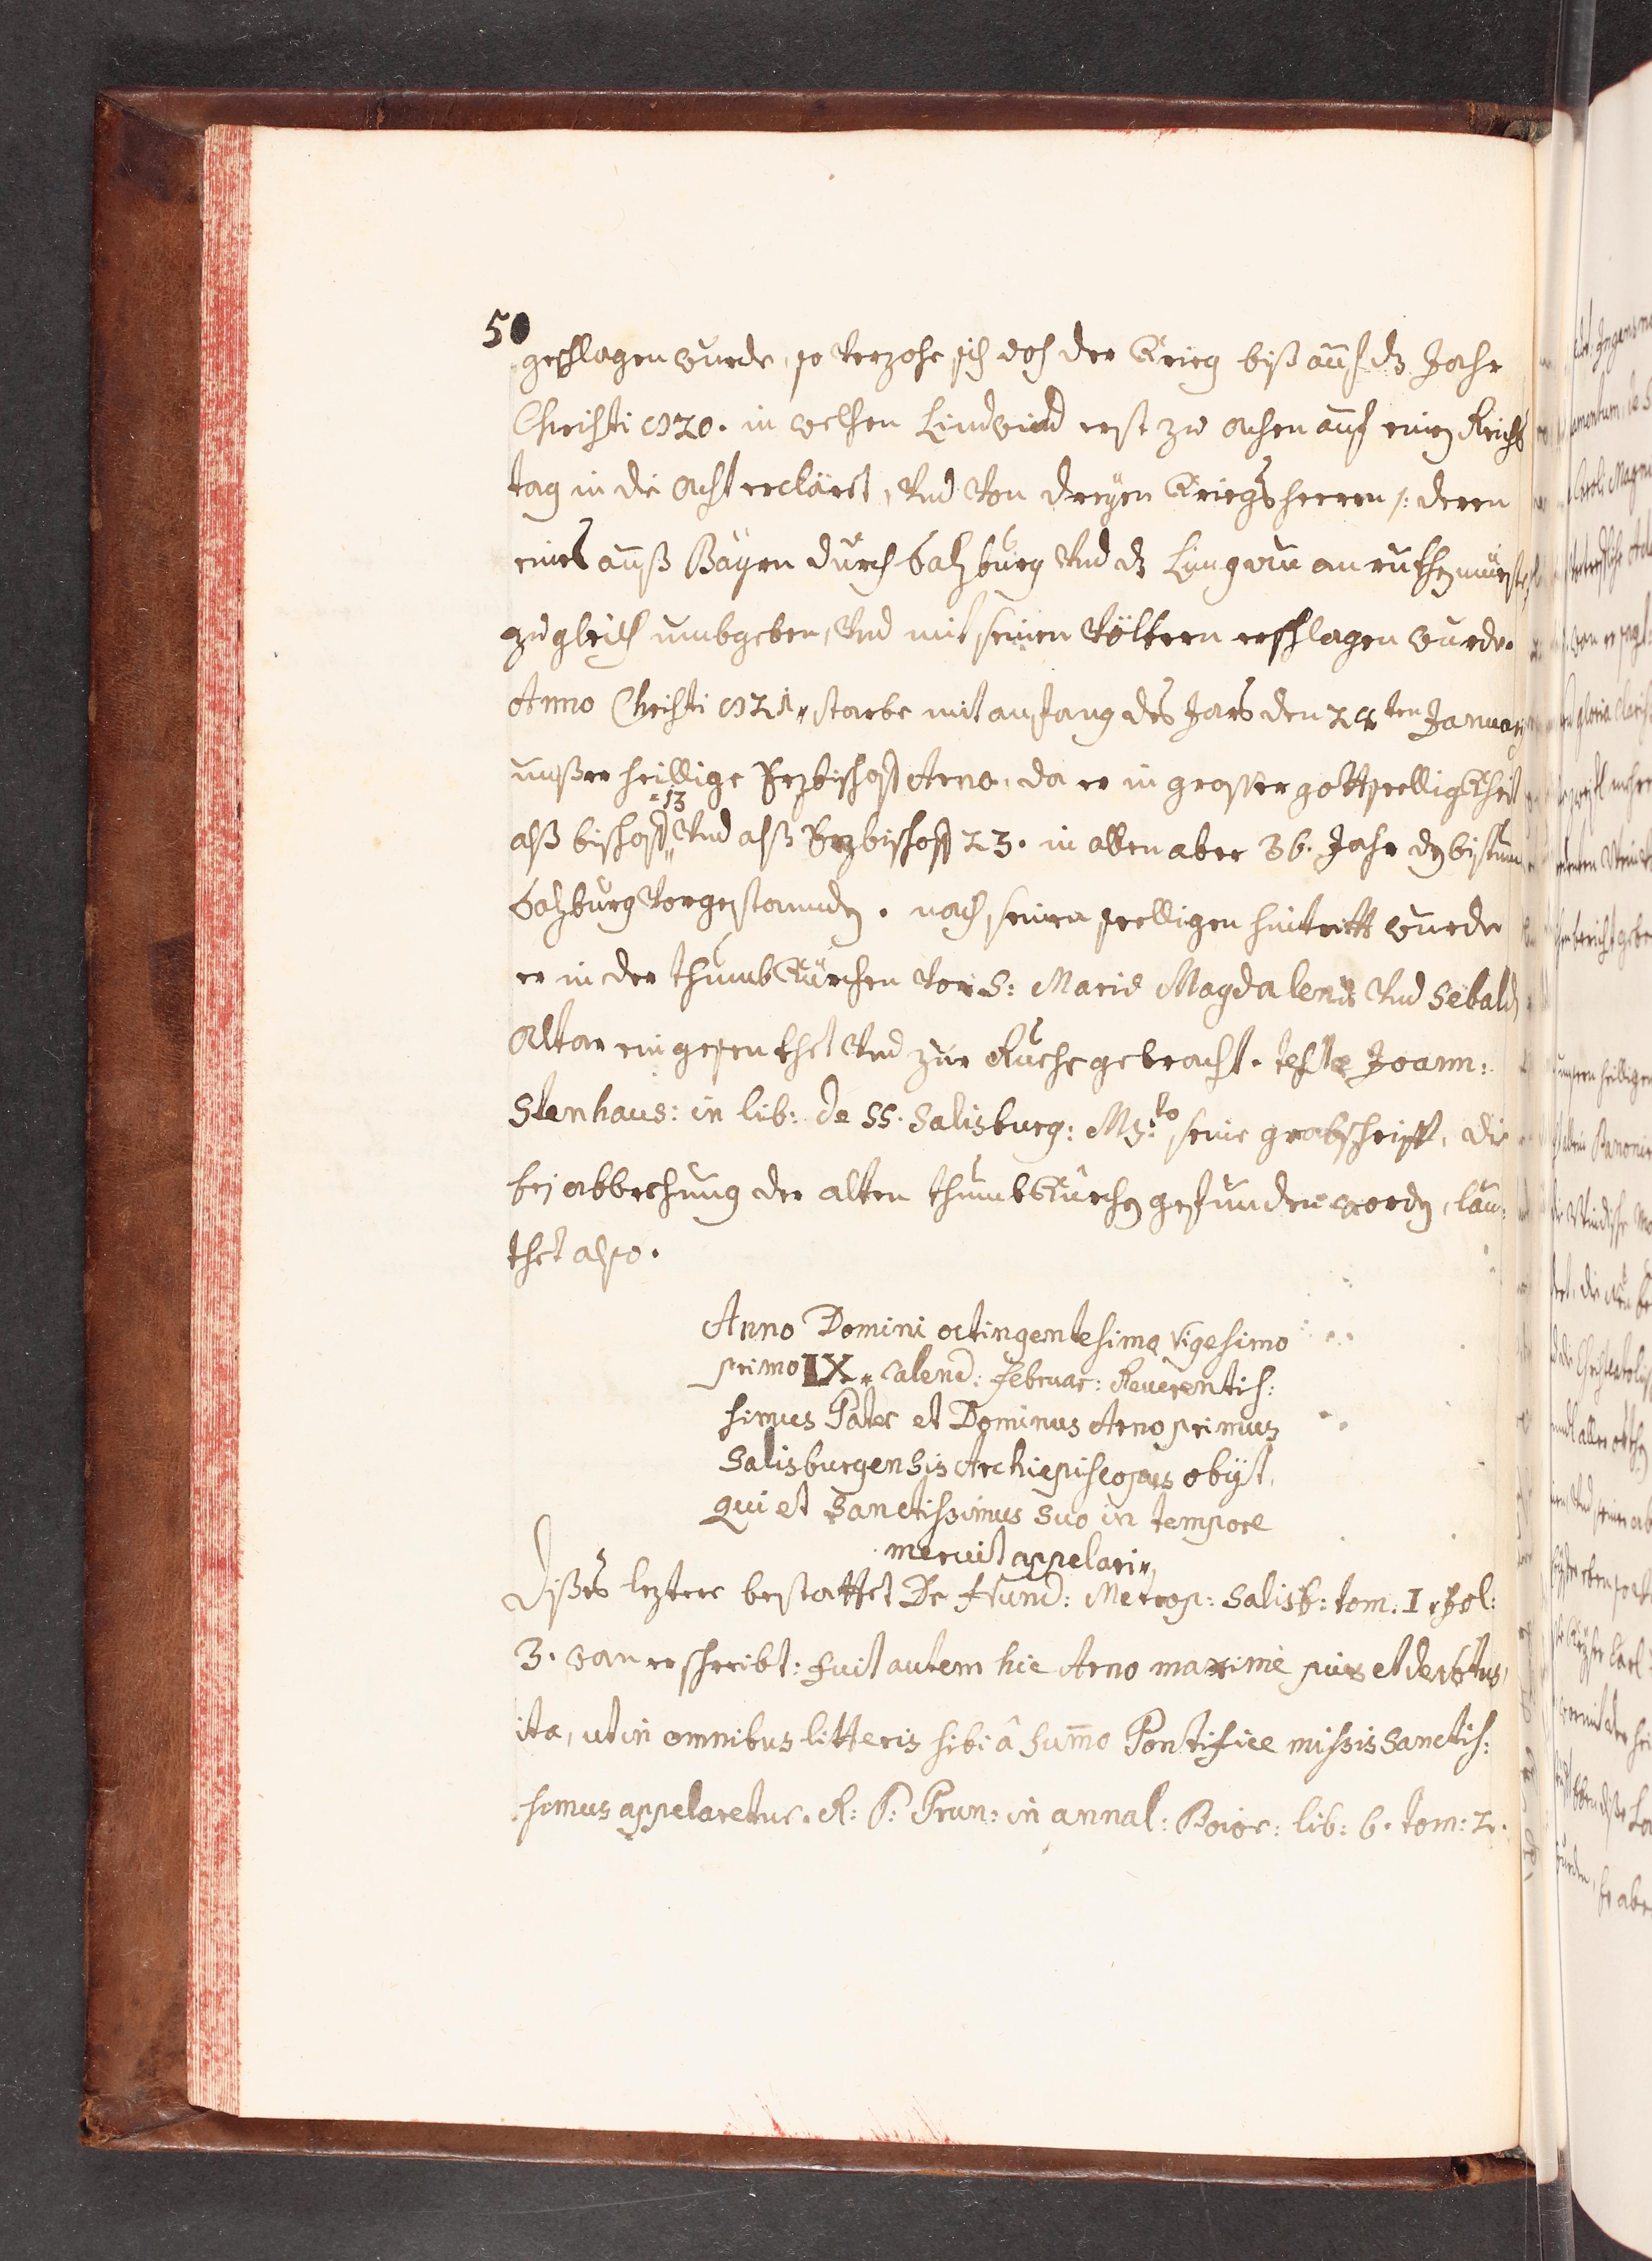 50
geschlagen wurde, so verzohe sich doch der Krieg biß auf dz Jahr
Christi 820. in welchen Lindwind erst zu Achen auf einen Reichs
tag in die Acht erclärt, Vnd Von dreyen Kriegsherren /: deren
eines auß Bayrn durch Salzburg Vnd dz Lungau anruckhen
zugleich umbgeben, Vnd mit seinen Völkern erschlagen wurde.
Anno Christi 821„ starbe mit anfang des Jars den 24ten Januarj
unßer heillige Erzbischoff Arno, da er in grosser gottseelligkheit
alß bischoff 13 Vnd alß Erzbischoff 23. in allen aber 36. Jahr dz bistum
Salzburg Vorgestannden. nach seinen seelligen hintritt wurde
er in der thumbkürchen Vor S: Mariæ Magdalenæ Vnd Sebaldi
Altar eingesenkhet Vnd zur Ruehe gebracht. teste Joann:
Stenhaus: in lib: de SS. Salisburg: Ms:to seine grabschrifft, die
bej abbrechung der alten thumbkürchen gefunden worden, lau:
thet also.
Anno Domini octingentesimo Vigesimo
primo IX„ Calend: Februar: Reuerentis:
simus Pater et Dominus Arno primus
Salisburgensis Archiepiscopus obijt,
qui et Sanctissimus suo in tempore
meruit appelari„
Dißes leztere bestattet D: Hund: Metrop: Salisb: tom. I fol:
3. wan er schreibt: fuit autem hic Arno maximè pius et devotus,
ita, ut in omnibus litteris sibi â Sum̄o Pontifice missis Sanctis:
simus appelaretur. R: P: Brun: in annal: Boior: lib: 6. tom: 2.